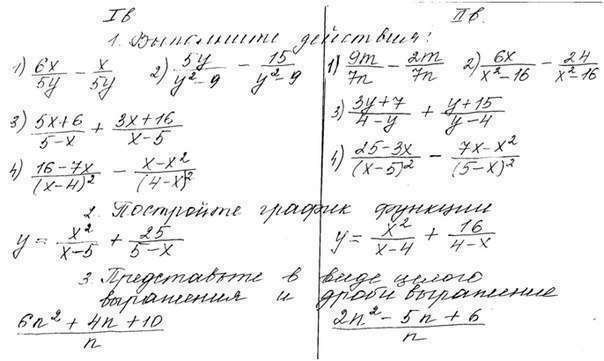 I в. II в.
1. Выполните действия:
1) 6x/5y - x/5y 2) 5y/(y²-9) - 15/(y²-9)
3) (5x+6)/(5-x) + (3x+16)/(x-5)
4) (16-7x)/(x-4)² - (x-x²)/(4-x)²
1) 9m/7n - 2m/7n 2) 6x/(x²-16) - 24/(x²-16)
3) (3y+7)/(4-y) + (y+15)/(y-4)
4) (25-3x)/(x-5)² - (7x-x²)/(5-x)²
2. Постройте график функции
y = x²/(x-5) + 25/(5-x) y = x²/(x-4) + 16/(4-x)
3. Представьте в виде целого
выражения и дроби выражение
(6n² + 4n + 10)/n (2n² - 5n + 6)/n